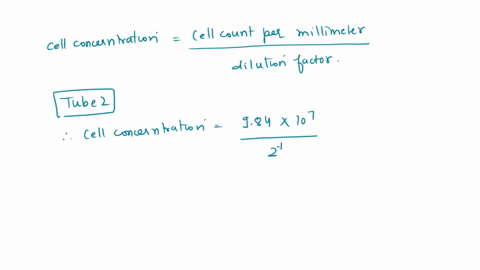 cell concerntration = Cell count per millimeter
dilution factor.
Tube 2
∴ Cell concerntration = 9.84 × 10⁷
2⁻¹